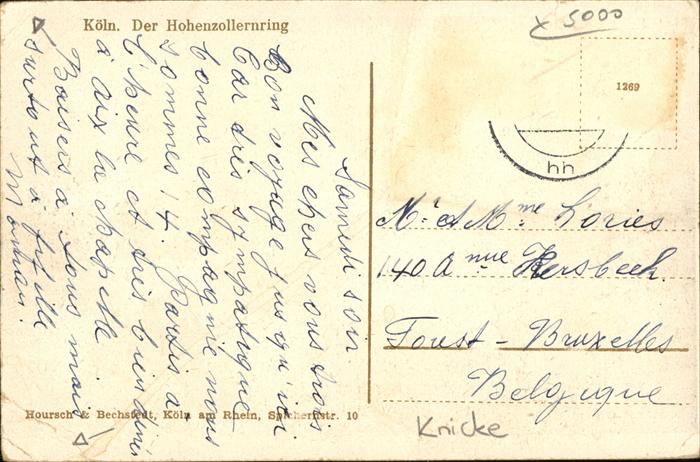 Köln. Der Hohenzollernring
x 5000
1269
hh
Samedi soir
Mes chers vous trois
Bon voyage jusqu'ici.
Car très sympatique
bonne compagnie nous
sommes 14. Partis a
l'heure et très bien diné
à aix la chapelle.
Baisers à tous mais
surtout à fifille
Maman.
Mr et Mme Lories
140 Anue Kersbeek.
Forest - Bruxelles
Belgique
Hoursch & Bechstedt, Köln am Rhein, Spichernstr. 10
Knicke